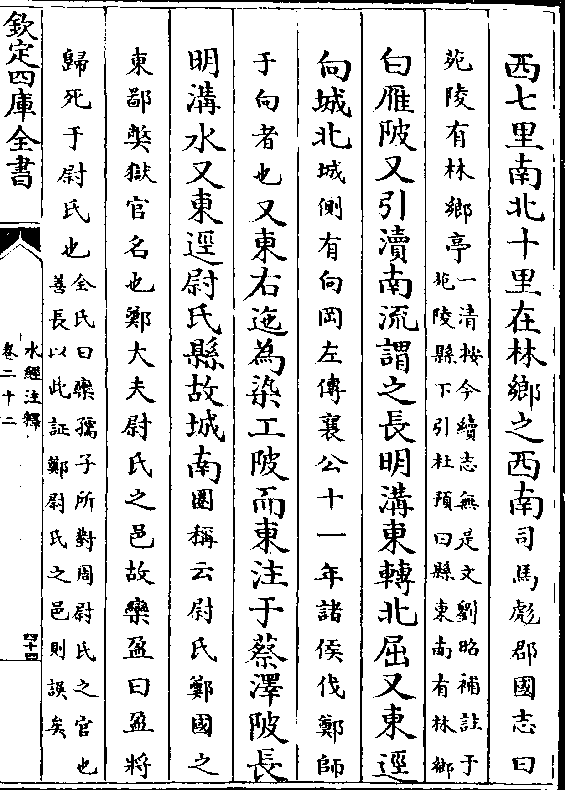 西七里南北十里在林鄉之西南司馬彪郡國志曰
苑陵有林鄉亭一清按今續志無是文劉昭補註于
苑陵縣下引杜預曰縣東南有林鄉
白雁陂又引瀆南流謂之長明溝東轉北屈又東逕
向城北城側有向岡左傳襄公十一年諸侯伐鄭師
于向者也又東右迤為染工陂而東注于蔡澤陂長
明溝水又東逕尉氏縣故城南圈稱云尉氏鄭國之
東鄙獘獄官名也鄭大夫尉氏之邑故欒盈曰盈將
歸死于尉氏也全氏曰欒孺子所對周尉氏之官也
善長以此証鄭尉氏之邑則誤矣
欽定四庫全書
水經注釋
卷二十二
四十四